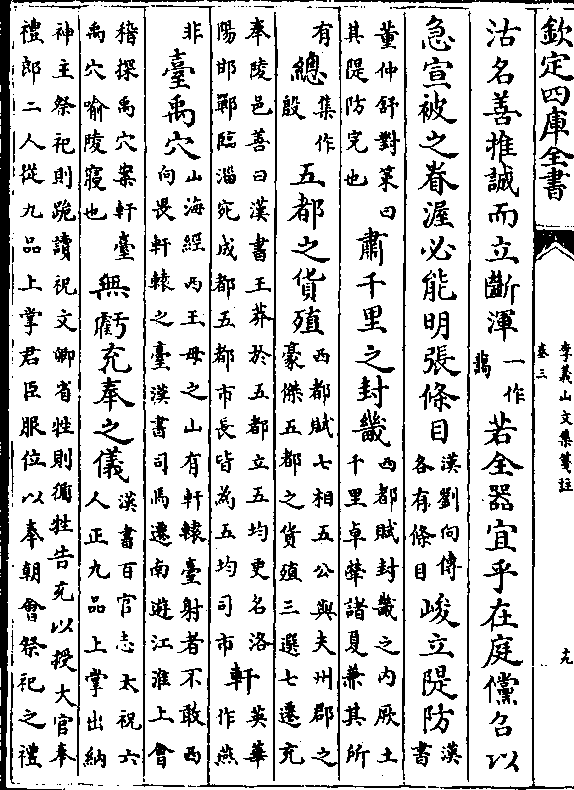 欽定四庫全書
李義山文集箋註
卷三
十九
沽名善推誠而立斷渾一作若全器宜乎在庭儻召以
急宣被之眷渥必能明張條目漢劉向傳各有條目峻立隄防漢書
董仲舒對策曰其隄防完也肅千里之封畿西都賦封畿之內厥土千里卓犖諸夏兼其所
有總集作殷五都之貨殖西都賦七相五公與夫州郡之豪傑五都之貨殖三選七遷充
奉陵邑善曰漢書王莽於五都立五均更名洛陽邯鄲臨淄宛成都五都市長皆為五均司市軒英華作燕
非臺禹穴山海經西王母之山有軒轅臺射者不敢西向畏軒轅之臺漢書司馬遷南遊江淮上會
稽探禹穴案軒臺禹穴喻陵寢也無虧充奉之儀漢書百官志太祝六人正九品上掌出納
神主祭祀則跪讀祝文卿省牲則循牲告充以授大官奉禮郎二人從九品上掌君臣服位以奉朝會祭祀之禮